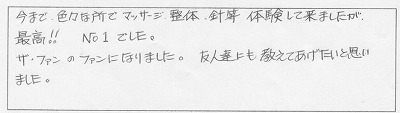 今まで、色々な所でマッサージ、整体、針等 体験して来ましたが、
最高!! No1でした。
ザ・ファンのファンになりました。 友人達にも教えてあげたいと思い
ました。